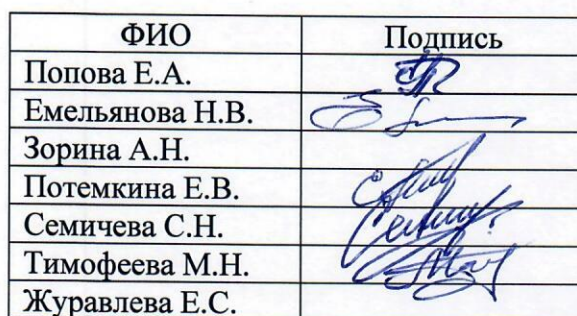 ФИО Подпись
Попова Е.А.
Емельянова Н.В.
Зорина А.Н.
Потемкина Е.В.
Семичева С.Н.
Тимофеева М.Н.
Журавлева Е.С.